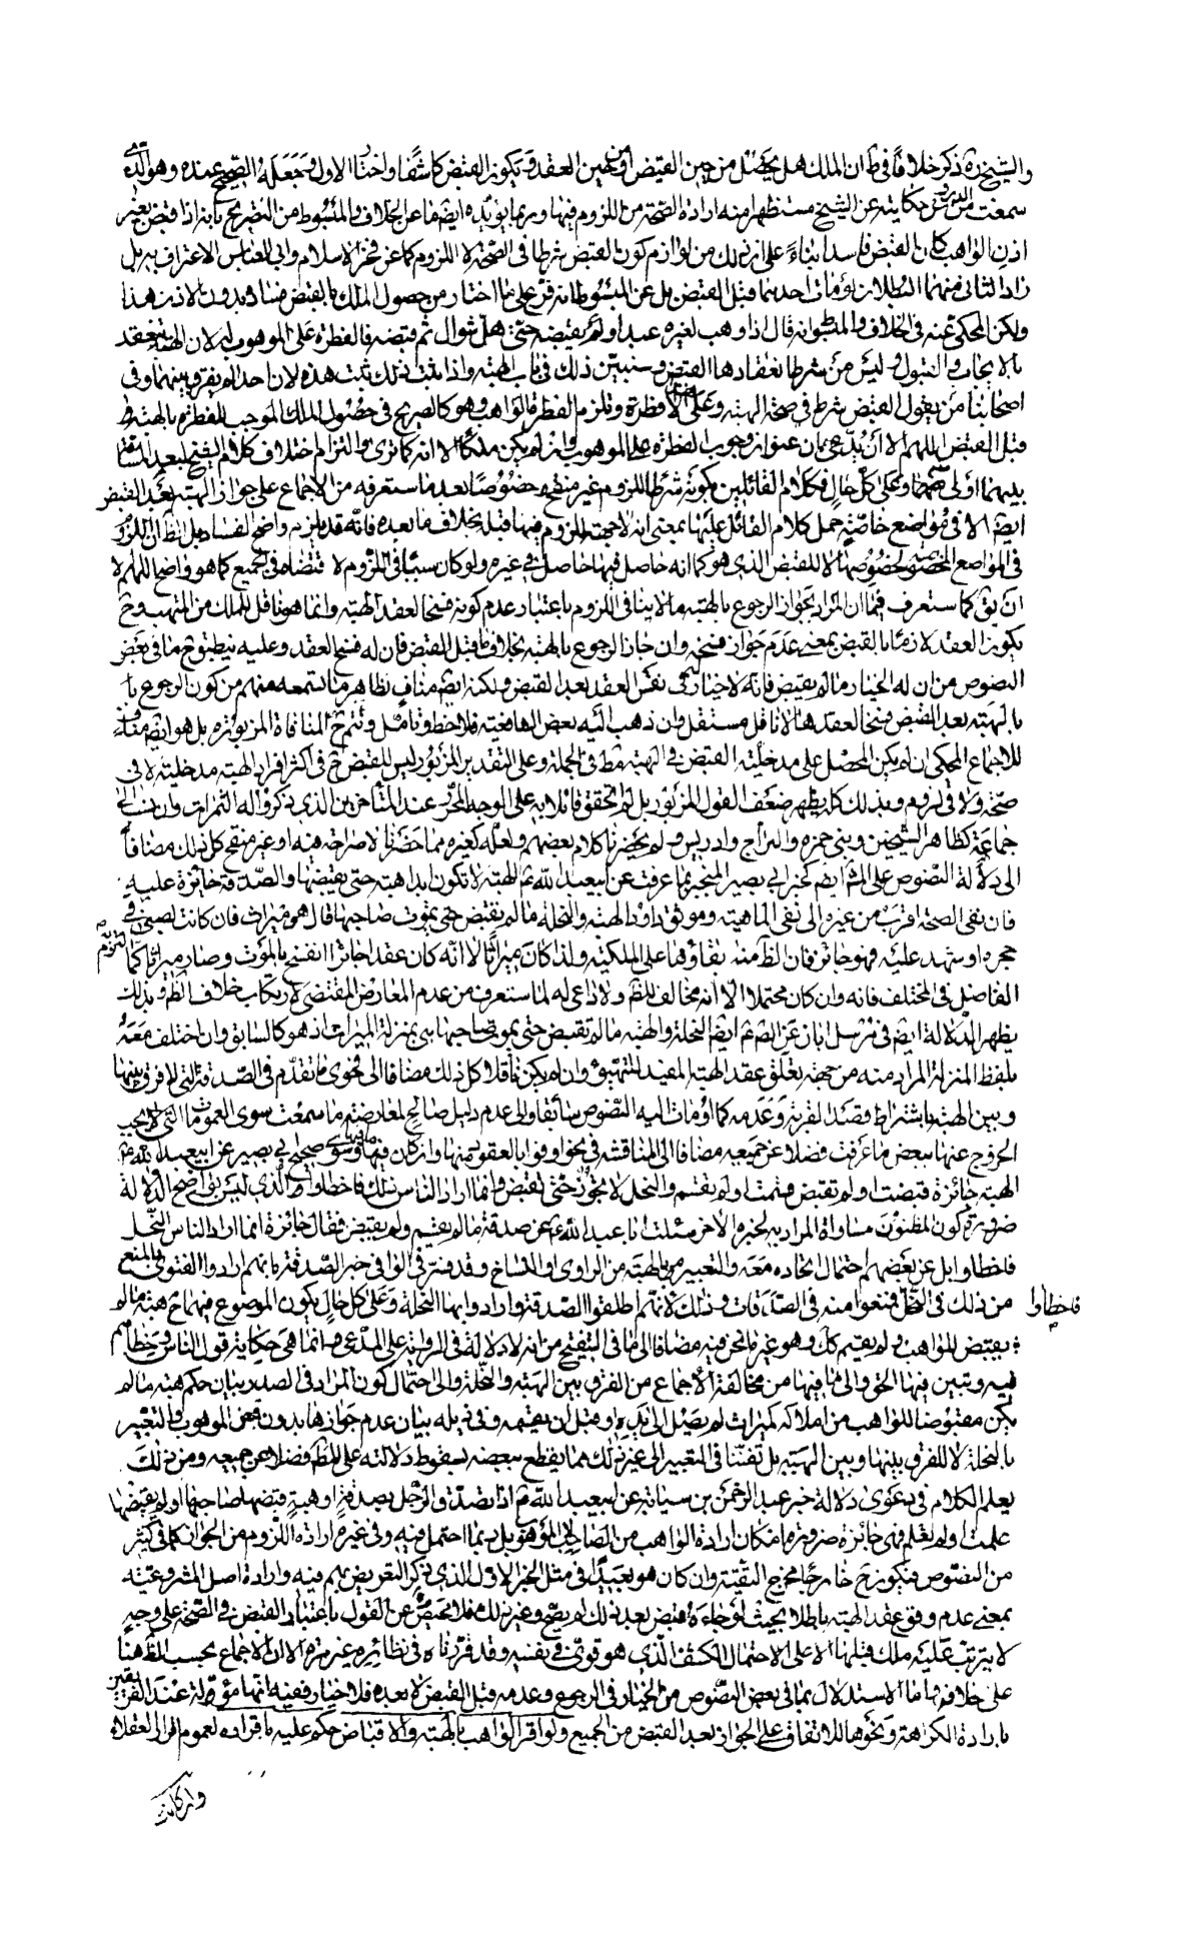 والشيخ ره ذكر خلافا في ان الملك هل يحصل من حين القبض او من حين العقد ويكون القبض كاشفا واختار الاول وجعله الصحيح عنده وهو الذى
سمعت من س حكايته عن الشيخ مستظهرا منه ارادة الصحة من اللزوم فيها وربما يؤيده ايضا ما عن الخلاف والمبسوط من التصريح بانه اذا قبض بغير
اذن الواهب كان القبض فاسدا بناء على ان ذلك من لوازم كون القبض شرطا في الصحة لا اللزوم كما عن فخر الاسلام وابى العباس الاعتراف به بل
زاد الثانى منهما البطلان لو مات احدهما قبل القبض بل عن المبسوط انه فرع على ما اختار من حصول الملك بالقبض فساده بدون الاذن هذا
ولكن المحكى عنه في الخلاف والمبسوط انه قال اذا وهب لغيره عبدا ولم يقبضه حتى هل شوال ثم قبضه فالفطرة على الموهوب له لان الهبة تنعقد
بالايجاب والقبول وليس من شرط انعقادها القبض وسنبين ذلك في باب الهبة واذا ثبت ذلك ثبت هذه لان احدا لم يفرق بينهما وفى
اصحابنا من يقول القبض شرط في صحة الهبة وعلى هذا لا فطرة وتلزم الفطرة الواهب وهو كالصريح في حصول الملك الموجب للفطرة بالهبة
قبل القبض اللهم الا ان يدعى ان عنوان وجوب الفطرة على الموهوب وان لم يكن ملكا الا انه كما ترى والتزام خلاف كلام الشيخ
وعلى كل حال فكلام القائلين بكونه شرط اللزوم غير منقح وخصوصا بعد ما ستعرفه من الاجماع على جواز الهبة بعد القبض
ايضا الا في مواضع خاصة حمل كلام القائل عليها بمعنى انه لا جهة للزوم فيها قبله بخلاف ما بعده فانه قد يلزم واضح الفساد بل الظ ان اللزوم
في المواضع المخصوصة لخصوصها لا للقبض الذى هو كما انه حاصل فيها حاصل في غيره ولو كان سببا في اللزوم لاقتضاه في الجميع كما هو واضح اللهم الا
ان يق كما ستعرف فيما ان المراد بجواز الرجوع بالهبة ما لا ينافى اللزوم باعتبار عدم كونه فسخا لعقد الهبة وانما هو ناقل للملك من المتهب وح
يكون العقد لازما بالقبض بمعنى عدم جواز فسخه وان جاز الرجوع بالهبة بخلاف ما قبل القبض فان له فسخ العقد وعليه ينطبق ح ما في بعض
النصوص من ان له الخيار ما لم يقبض فانه لا خيار له في نفس العقد بعد القبض ولكنه ايضا مناف لظاهر ما تسمعه منهم من كون الرجوع با
بالهبة بعد القبض فسخا لعقدها لا ناقل مستقل وان ذهب اليه بعض العامة فلاحظ وتامل وتتم ح المنافاة المزبورة بل هو ايضا مناف
للاجماع المحكى ان لم يكن المحصل على مدخلية القبض في الهبة مط في الجملة وعلى التقدير المزبور ليس للقبض ح في اكثر افراد الهبة مدخلية لا في
صحة ولا في لزوم وبذلك كله يظهر ضعف القول المزبور بل لم نتحقق قائلا به على الوجه المحرر عند المتأخرين الذى ذكروا له الثمرات وان نسب الى
جماعة كظاهر الشيخين وبنى حمزه والبراج وادريس ولم يحضرنا كلام بعضهم ولعله كغيره مما حضرنا لا صراحة فيه او غير منقح كل ذلك مضافا
الى دلالة النصوص على المش ايضا كخبر ابى بصير المنجبر بما عرفت عن ابيعبد الله ع الهبة لا تكون ابدا هبة حتى يقبضها والصدقة جائزة عليه
فان نفى الصحة اقرب من غيره الى نفى الماهية وموثق داود الهبة والنحلة ما لم يقبض حتى يموت صاحبها قال هو ميراث فان كانت لصبى في
حجره واشهد عليه فهو جائز فان الظ منه بقاؤها على الملكية ولذا كان ميراثا لا انه كان عقدا جائزا انفسخ بالموت وصار ميراثا كما التزم
الفاضل في المختلف فانه وان كان محتملا الا انه مخالف للظ ولا داعى له لما ستعرف من عدم المعارض المقتضى لارتكاب خلاف الظ وبذلك
يظهر الدلالة ايضا في مرسل ابان عن الص ع ايضا النحلة والهبة ما لم تقبض حتى يموت صاحبها هى بمنزلة الميراث اذ هو كالسابق وان اختلف معه
بلفظ المنزلة المراد منه من جهة تعلق عقد الهبة المفيد للتهيؤ وان لم يكن ناقلا كل ذلك مضافا الى فحوى ما تقدم في الصدقة التى لا فرق بينها
وبين الهبة باشتراط قصد القربة وعدمه كما اومأت اليه النصوص سابقا والى عدم دليل صالح لمعارضته ما سمعت سوى العمومات التى لا يجب
الخروج عنها ببعض ما عرفت فضلا عن جميعه مضافا الى المناقشة في نحو اوفوا بالعقود منها وان كان فيها ما فيها وسوى صحيح ابى بصير عن ابيعبد الله ع
الهبة جائزة قبضت او لم تقبض قسمت او لم يقسم والنحل لا يجوز حتى تقبض وانما اراد الناس ذلك فاخطاوا والذى ليس بواضح الدلالة
ضرورة كون المظنون مساواة المراد به لخبره الاخر سئلت ابا عبد الله ع عن صدقة ما لم يقسم ولم يقبض فقال جائزة انما اراد الناس النحل
فاخطاوا بل عن بعضهم احتمال اتحاده معه والتعبير بالهبة من الراوى او النساخ وقد فسر في الوافى خبر الصدقة بانهم ارادوا الفتوى بالمنع
من ذلك في النحل فمنعوا منه في الصدقات وذلك لانهم اطلقوا الصدقة وارادوا بها النحلة وعلى كل حال يكون الموضوع فيهما ح هبة ما لم
فاخطاوا
يقبض للواهب ولم يقسم كك وهو غير ما نحن فيه مضافا الى ما في التنقيح من انه لا دلالة في الرواية على المدعى وانما هى حكاية قول الناس وخطاهم
فيه وتبين فيها الحق والى ما فيها من مخالفة الاجماع من الفرق بين الهبة والنحلة والى احتمال كون المراد في الصدر بيان حكم هبة ما لم
يكن مقبوضا للواهب من املاكه كميراث لم يصل الى يده او قبل ان يقسمه وفى ذيله بيان عدم جوازها بدون قبض الموهوب والتعبير
بالنحلة لا للفرق بينها وبين الهبة بل تفننا في التعبير الى غير ذلك مما يقطع ببعضه بسقوط دلالته على المط فضلا عن جميعه ومن ذلك
يعلم الكلام في دعوى دلالة خبر عبد الرحمن بن سيابة عن ابيعبد الله ع اذا تصدق الرجل بصدقة او هبة قبضها صاحبها او لم يقبضها
علمت او لم تعلم فهى جائزة ضرورة امكان ارادة الواهب من الصاحب لا الموهوب بل ربما احتمل فيه وفى غيره ارادة اللزوم من الجواز كما في كثير
من النصوص فيكون ح خارجا مخرج التقية وان كان هو بعيدا في مثل الخبر الاول الذى ذكر التعريض بهم فيه وارادة اصل المشروعية
بمعنى عدم وقوع عقد الهبة باطلا بحيث لو جاءه قبض بعد ذلك لم يصح وغير ذلك فلا محيص عن القول باعتبار القبض في الصحة على وجه
لا يترتب عليه ملك قبلها الا على الاحتمال الكشف الذى هو قوى في نفسه وقد قررناه في نظائره غير مرة الا ان الاجماع بحسب الظ هنا
على خلافه واما الاستدلال بما في بعض النصوص من الخيار في الرجوع وعدمه قبل القبض لا بعده فلا خيار ففيه انها مؤولة عند الفريقين
بارادة الكراهة ونحوها للاتفاق على الجواز بعد القبض من الجميع ولو اقر الواهب بالهبة والاقباض حكم عليه باقراره لعموم اقرار العقلاء
وان كانت